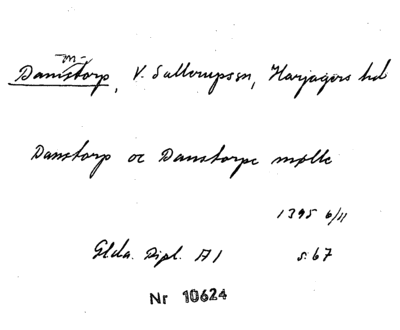 -m-
Damstorp, V. Sallerupssn, Harjagers hd
Damstorp oc Damstorpe mølle
1395 6/11
Glda. Dipl. A1 s. 67
Nr 10624